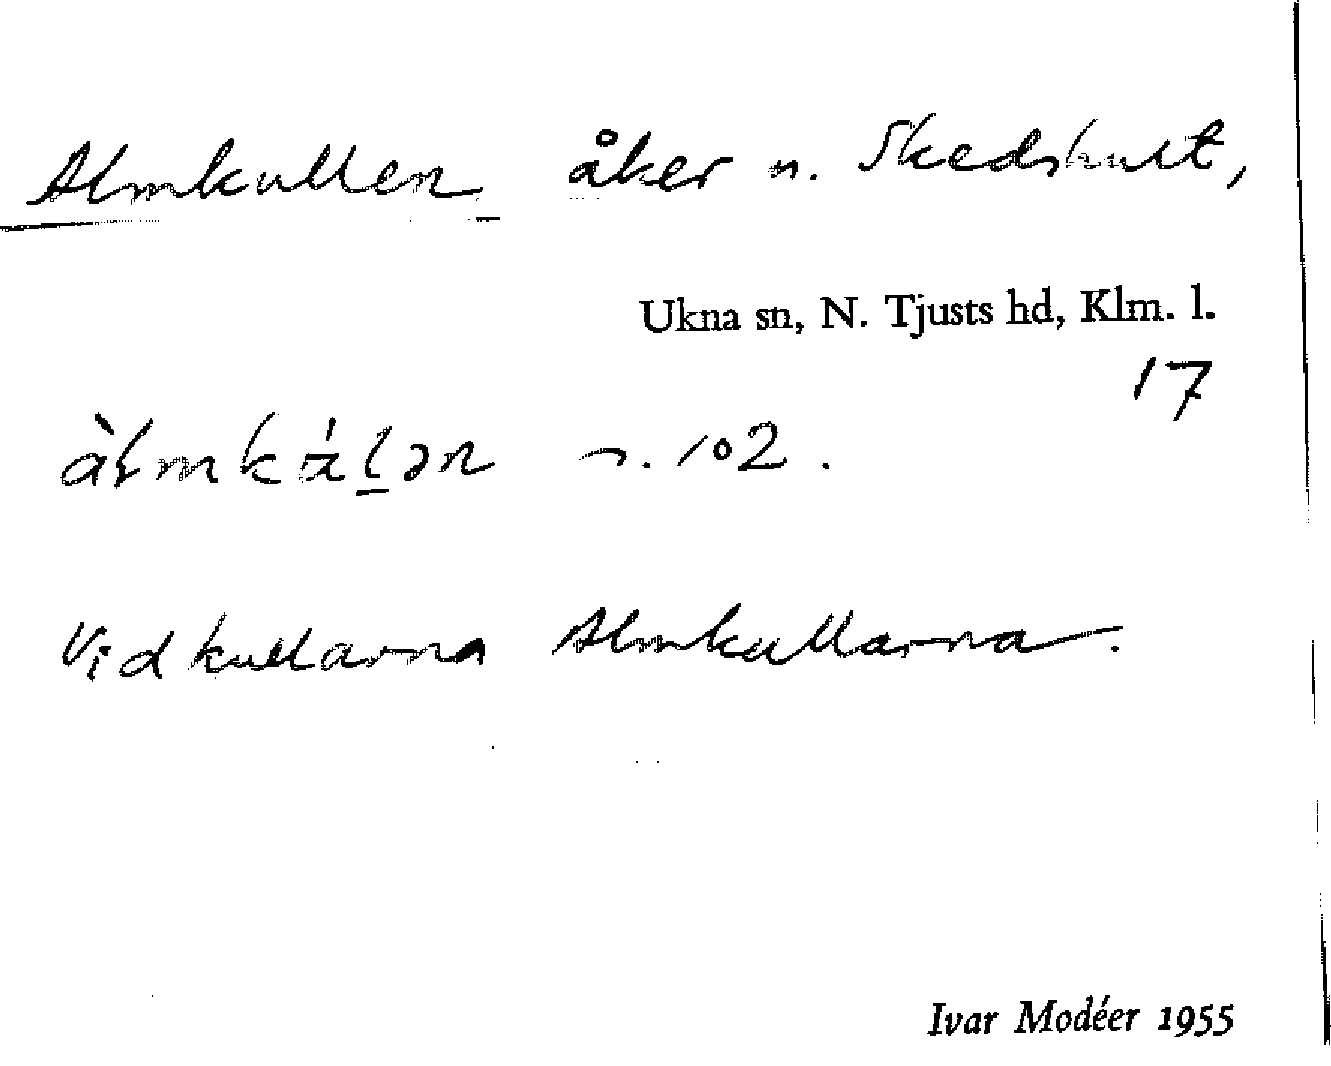 Almkullen åker n. Skedshult,
Ukna sn, N. Tjusts hd, Klm. l.
17
àlmká̈lən n. 102.
Vid kullarna Almkullarna.
Ivar Modéer 1955